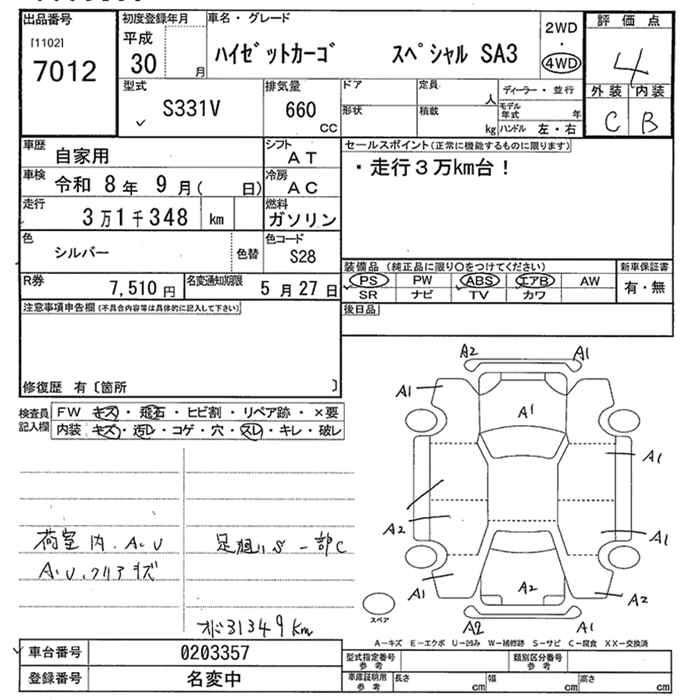 出品番号
[1102]
7012
初度登録年月
平成
30 月
車名・グレード
ハイゼットカーゴ スペシャル SA3
2WD
・
4WD
評価点
4
外装 内装
C B
型式
S331V
排気量
660
CC
ドア
形状
定員
人
積載
kg
ディーラー・並行
モデル
年式 年
ハンドル 左・右
車歴
自家用
シフト
AT
車検
令和 8年 9月( 日)
冷房
AC
走行
3万1千348 km
燃料
ガソリン
色
シルバー
色替
色コード
S28
R券
7,510円
名変通知期限
5月27日
セールスポイント(正常に機能するものに限ります)
・走行3万km台!
装備品(純正品に限り○をつけてください)
PS PW ABS エアB AW
SR ナビ TV カワ
新車保証書
有・無
後日品
注意事項申告欄(不具合内容等は具体的に記入して下さい)
修復歴 有〔箇所 〕
検査員
記入欄
FW キズ・飛石・ヒビ割・リペア跡・×要
内装 キズ・汚レ・コゲ・穴・スレ・キレ・破レ
荷室内.A.U
A.U.クリアキズ
足廻リS一部C
31349Km
A2
A1
A1
A1
A1
A2
A1
A1
A2
A2
A2
A1
スペア
A-キズ E-エクボ U-凹み W-補修跡 S-サビ C-腐食 XX-交換済
車台番号
0203357
登録番号
名変中
型式指定番号
参考
類別区分番号
参考
車庫証明用
参考
長さ cm
幅 cm
高さ cm